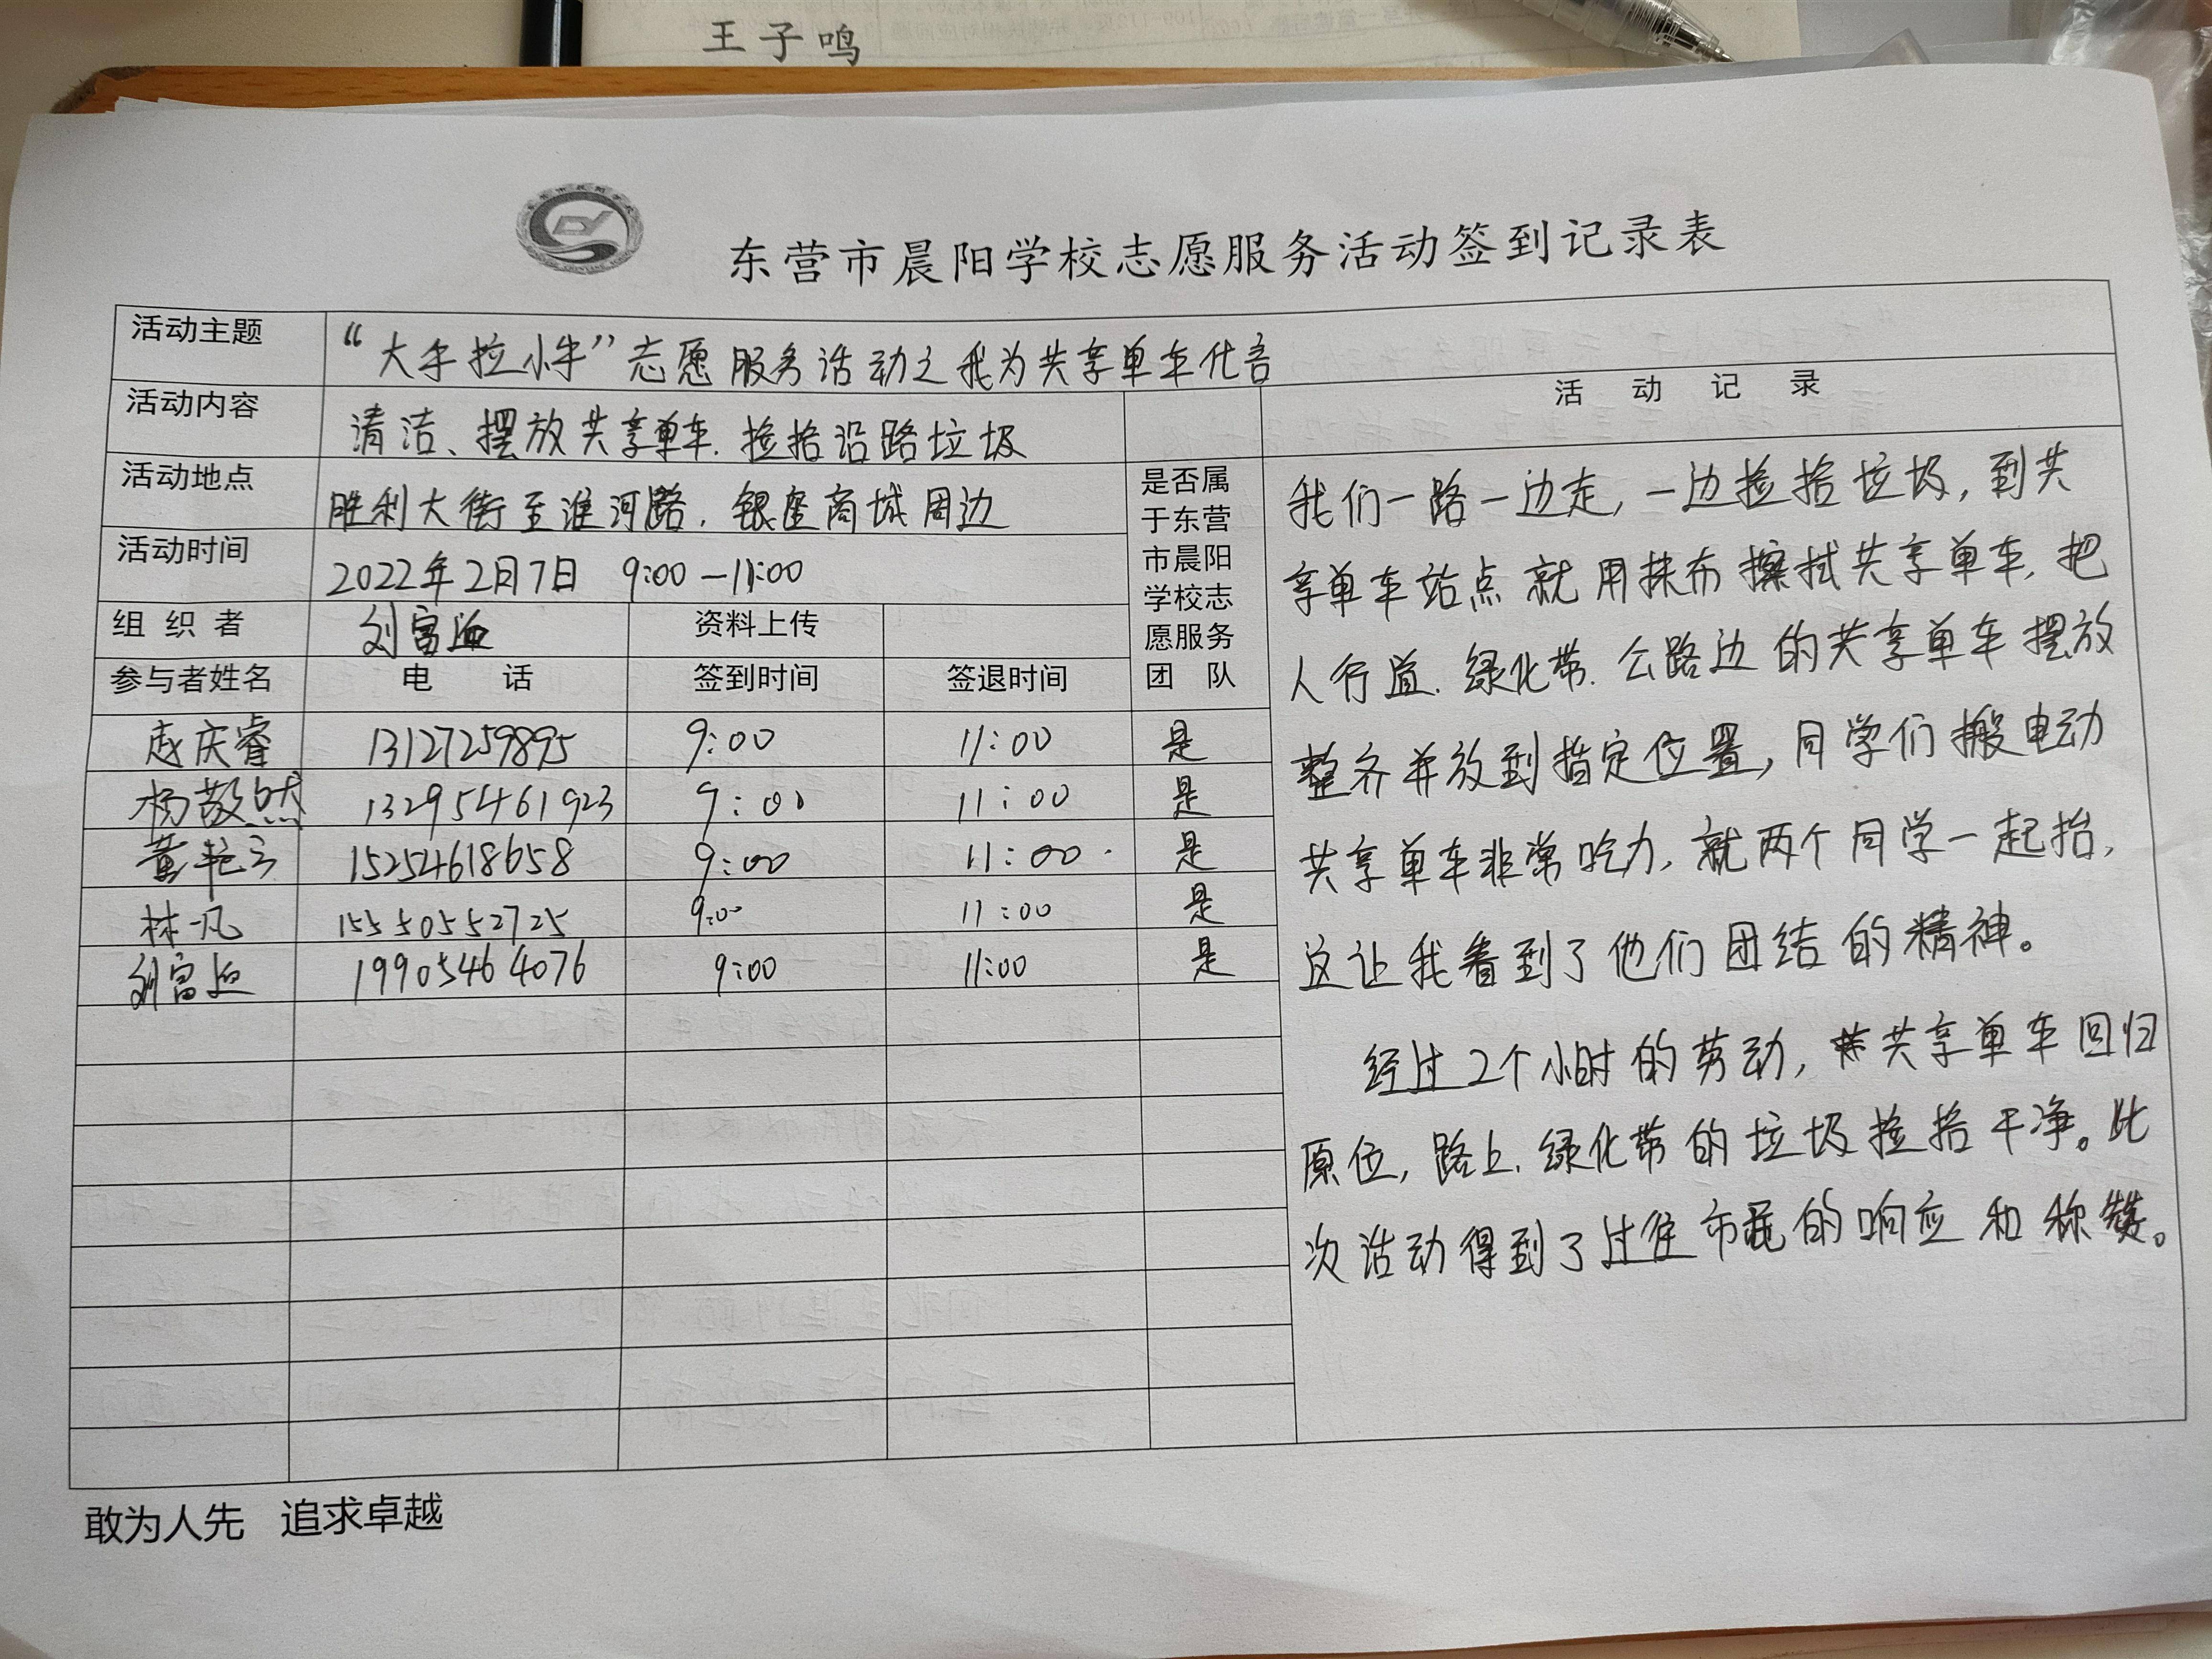 王子鸣
东营市晨阳学校志愿服务活动签到记录表
活动主题 “大手拉小手”志愿服务活动之我为共享单车代言
活动内容 清洁、摆放共享单车、捡拾沿路垃圾
活动记录
活动地点 胜利大街至淮河路、银座商城周边
活动时间 2022年2月7日 9:00—11:00
组织者 刘富 资料上传
参与者姓名 电话 签到时间 签退时间
是否属
于东营
市晨阳
学校志
愿服务
团队
赵庆睿 13127259895 9:00 11:00 是
杨敬然 13295461923 9:00 11:00 是
黄艳 15254618658 9:00 11:00 是
林凡 15550552725 9:00 11:00 是
刘富 19905464076 9:00 11:00 是
我们一路一边走,一边捡拾垃圾,到共
享单车站点就用抹布擦拭共享单车,把
人行道、绿化带、公路边的共享单车摆放
整齐并放到指定位置,同学们搬电动
共享单车非常吃力,就两个同学一起抬,
这让我看到了他们团结的精神。
经过2个小时的劳动,共享单车回归
原位,路上、绿化带的垃圾捡拾干净。此
次活动得到了过往市民的响应和称赞。
敢为人先 追求卓越